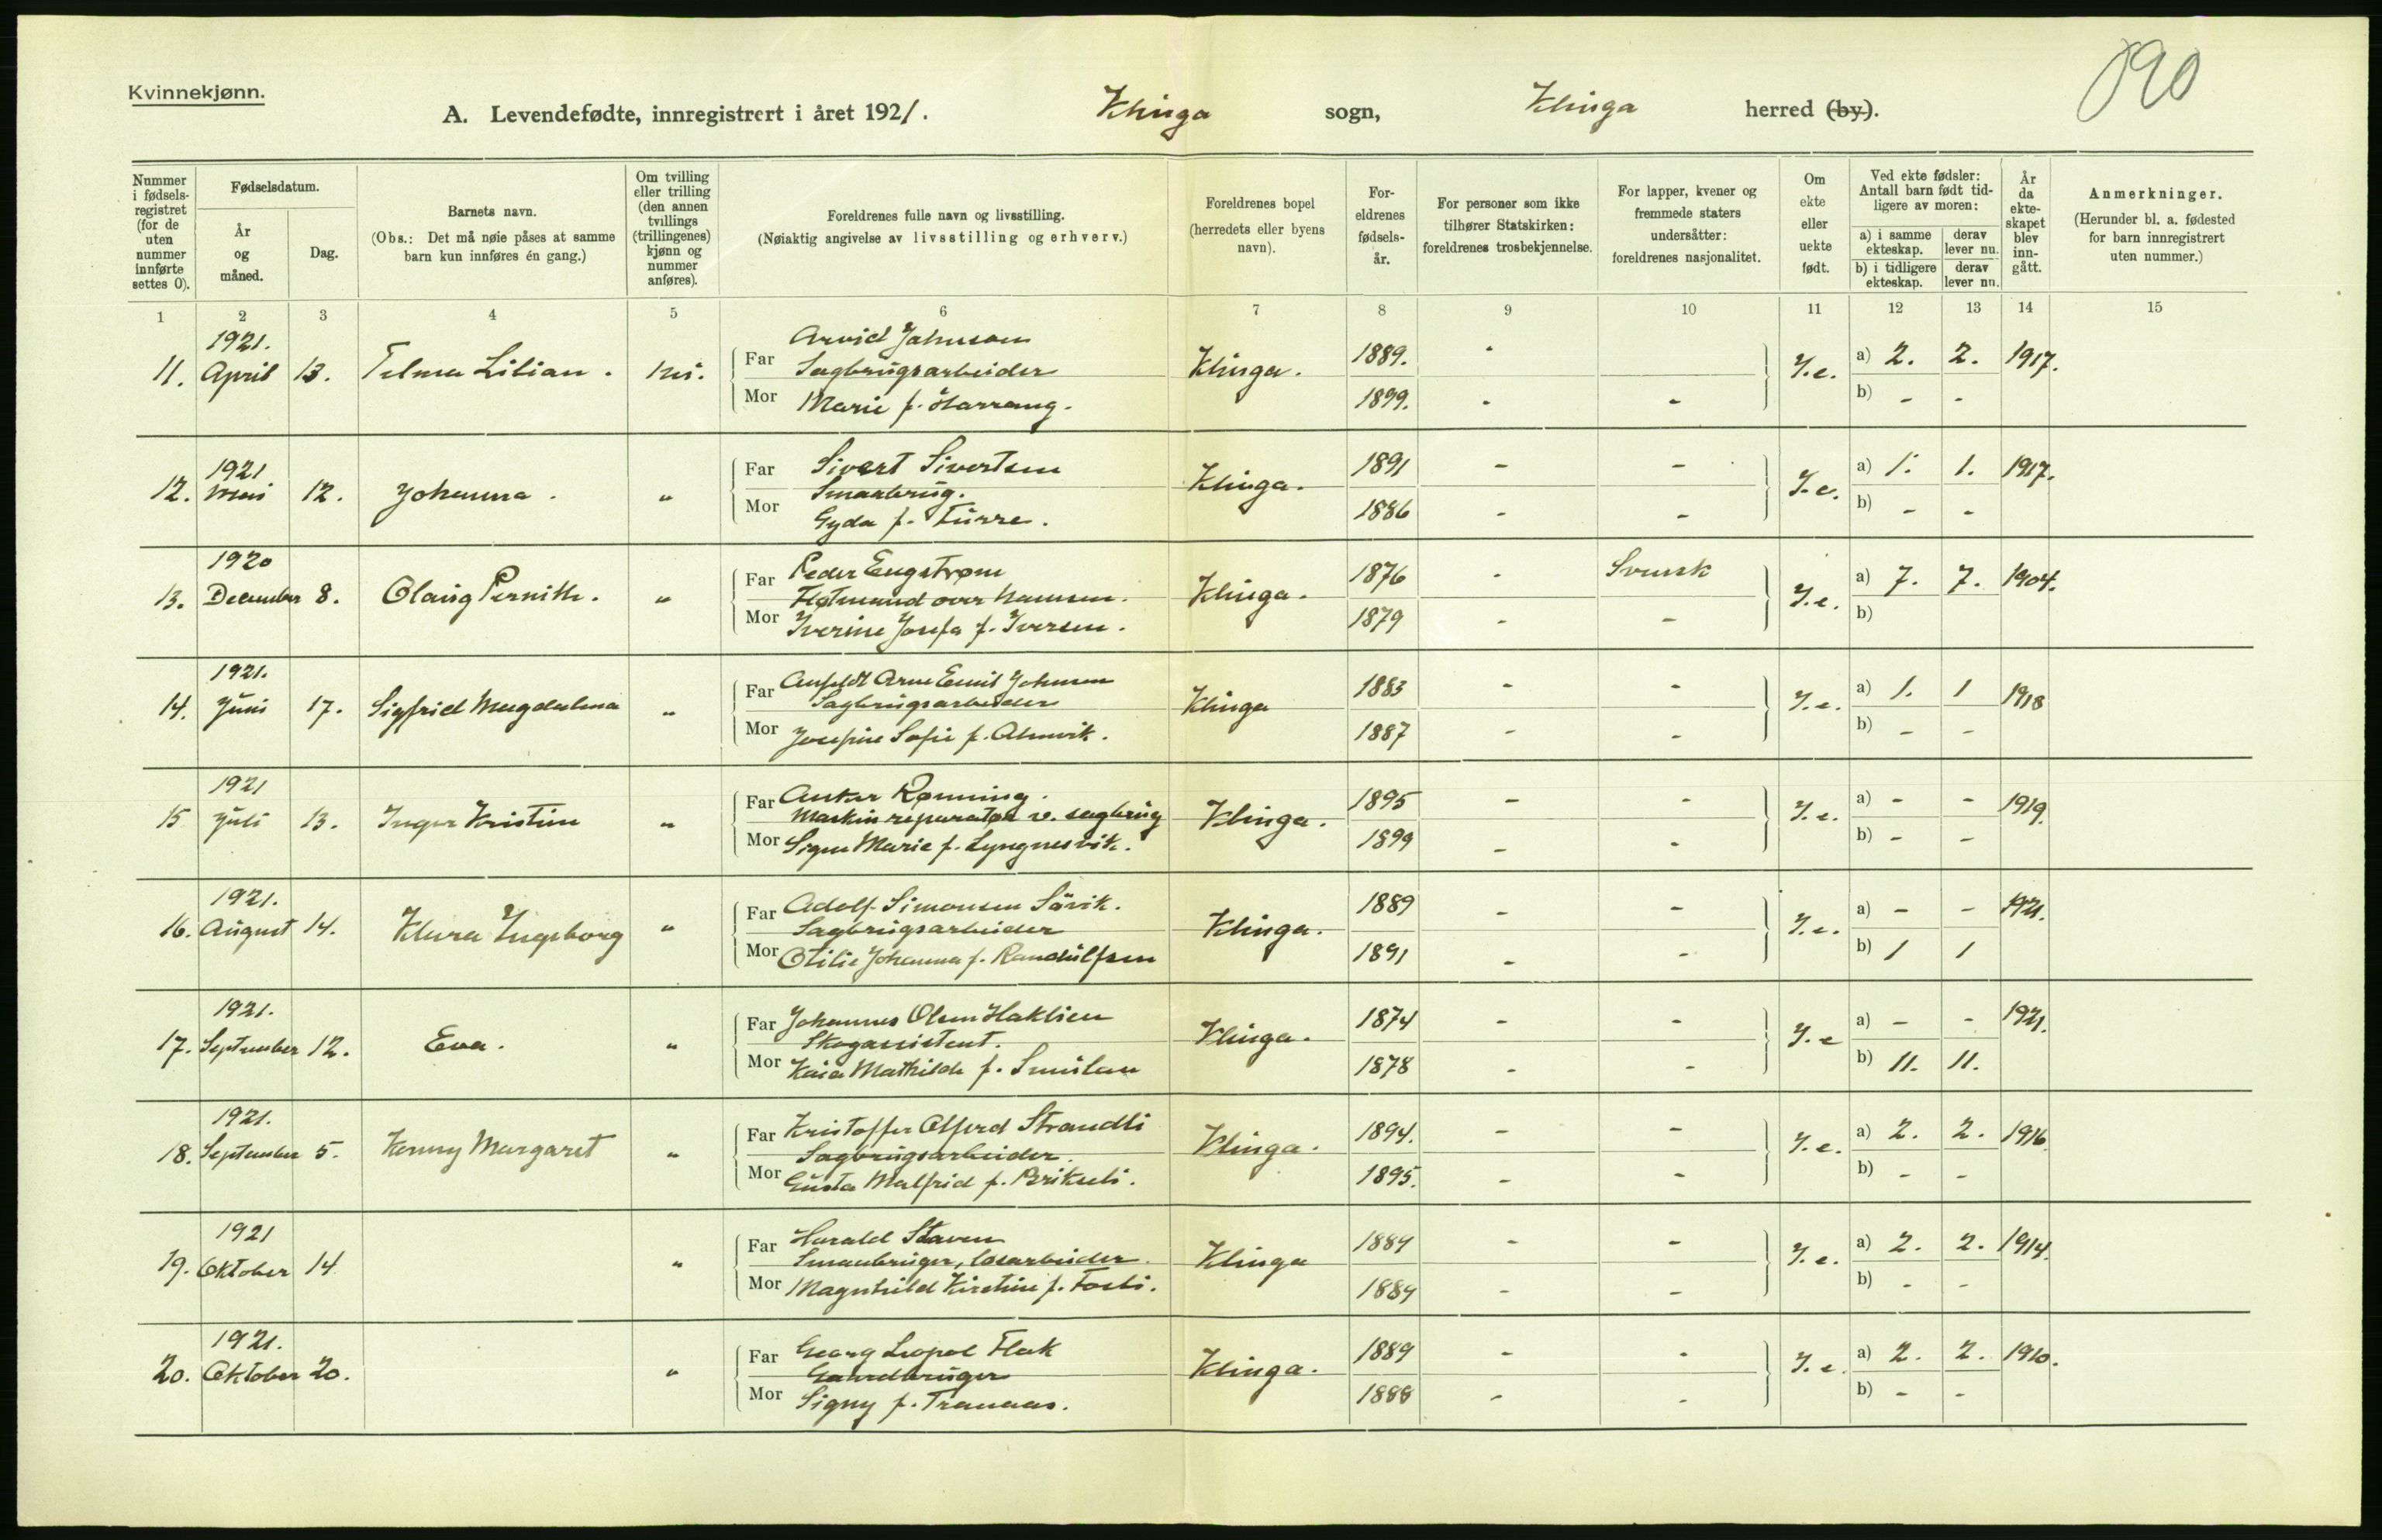 Kvinnekjønn.
090
A. Levendefødte, innregistrert i året 1921. Klinga sogn, Klinga herred (by).
Nummer i fødselsregistret (for de uten nummer innførte settes 0).
Fødselsdatum.
År og måned.
Dag.
Barnets navn.
(Obs.: Det må nøie påses at samme barn kun innføres én gang.)
Om tvilling eller trilling (den annen tvillings (trillingenes) kjønn og nummer anføres).
Foreldrenes fulle navn og livsstilling.
(Nøiaktig angivelse av livsstilling og erhverv.)
Foreldrenes bopel (herredets eller byens navn).
Foreldrenes fødselsår.
For personer som ikke tilhører Statskirken: foreldrenes trosbekjennelse.
For lapper, kvener og fremmede staters undersåtter: foreldrenes nasjonalitet.
Om ekte eller uekte født.
Ved ekte fødsler: Antall barn født tidligere av moren:
a) i samme ekteskap. derav lever nu.
b) i tidligere ekteskap. derav lever nu.
År da ekteskapet blev inngått.
Anmerkninger.
(Herunder bl. a. fødested for barn innregistrert uten nummer.)
1 2 3 4 5 6 7 8 9 10 11 12 13 14 15
1921.
Arvid Johnsen
11. April 13. Telma Lilian. Nei. Far Sagbrugsarbeider Klinga. 1889. - Y.e. a) 2. 2. 1917.
Mor Marie f. Harrang. 1899. - - b) - -
1921
Far Sivert Sivertsen 1891 - - a) 1. 1. 1917.
12. Mai 12. Johanna. " Smaabrug. Klinga. Y.e.
Mor Gyda f. Furre. 1886 - - b) - -
1920
Far Peder Engstrøm 1876 - Svensk a) 7. 7. 1904.
13. December 8. Olaug Pernille. " Fløtmand over Namsen. Klinga. Y.e.
Mor Iverine Josefa f. Iversen. 1879 - - b)
1921.
Far Arne Emil Johnsen 1883 - - a) 1. 1 1918
14. Juni 17. Sigfrid Magdalena " Sagbrugsarbeider Klinga Y.e.
Mor Josefine Sofie f. Almvik. 1887 - - b) - -
1921
Far Anker Rønning. 1895 - - a) - - 1919.
15 Juli 13. Inger Kristine " Maskinreparatør v. sagbrug Klinga. Y.e.
Mor Signe Marie f. Lyngnesvik. 1899 - - b) - -
1921.
Far Adolf Simonsen Sævik. 1889 - - a) - - 1921.
16. August 14. Klara Ingeborg " Sagbrugsarbeider Klinga. Y.e.
Mor Otilie Johanna f. Randulfsen 1891 - - b) 1 1
1921.
Far Johannes Olsen Haklien 1874 - - a) - - 1921.
17. September 12. Eva. " Skogassistent. Klinga. Y.e
Mor Kaia Mathilde f. Smislan 1878 - - b) 11. 11.
1921.
Far Kristoffer Alfred Strandli 1894. - - a) 2. 2. 1916
18. September 5. Kenny Margaret " Sagbrugsarbeider. Klinga. Y.e.
Mor Gusta Malfrid f. 1895. - - b) - -
1921
Far Harald Staven 1884 - - a) 2. 2. 1914.
19. Oktober 14 " Smaabruger, løsarbeider. Klinga Y.e.
Mor Magnhild Kirstine f. Fosli. 1884 - - b) - -
1921.
Far Georg Leopol Flak 1889 - - a) 2. 2. 1910.
20. Oktober 20. " Gaardbruger Klinga. Y.e.
Mor Signy f. Tranaas. 1888 - - b) - -